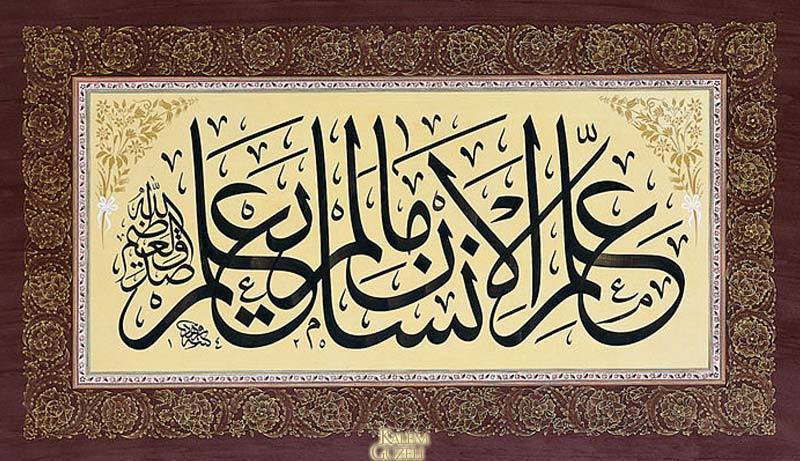 علّم الانسان ما لم يعلم
صدق الله العظيم
١٤٢٥
KALEM
GUZELI